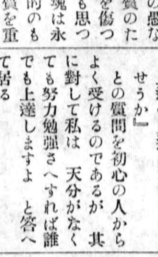 の愚な
質のた
を傷つ
も思つ
塊は永
的のも
質を重
せうか』
との質問を初心の人から
よく受けるのであるが 其
に對して私は 天分がなく
ても努力勉強さへすれば誰
でも上達しますよ と答へ
て居る